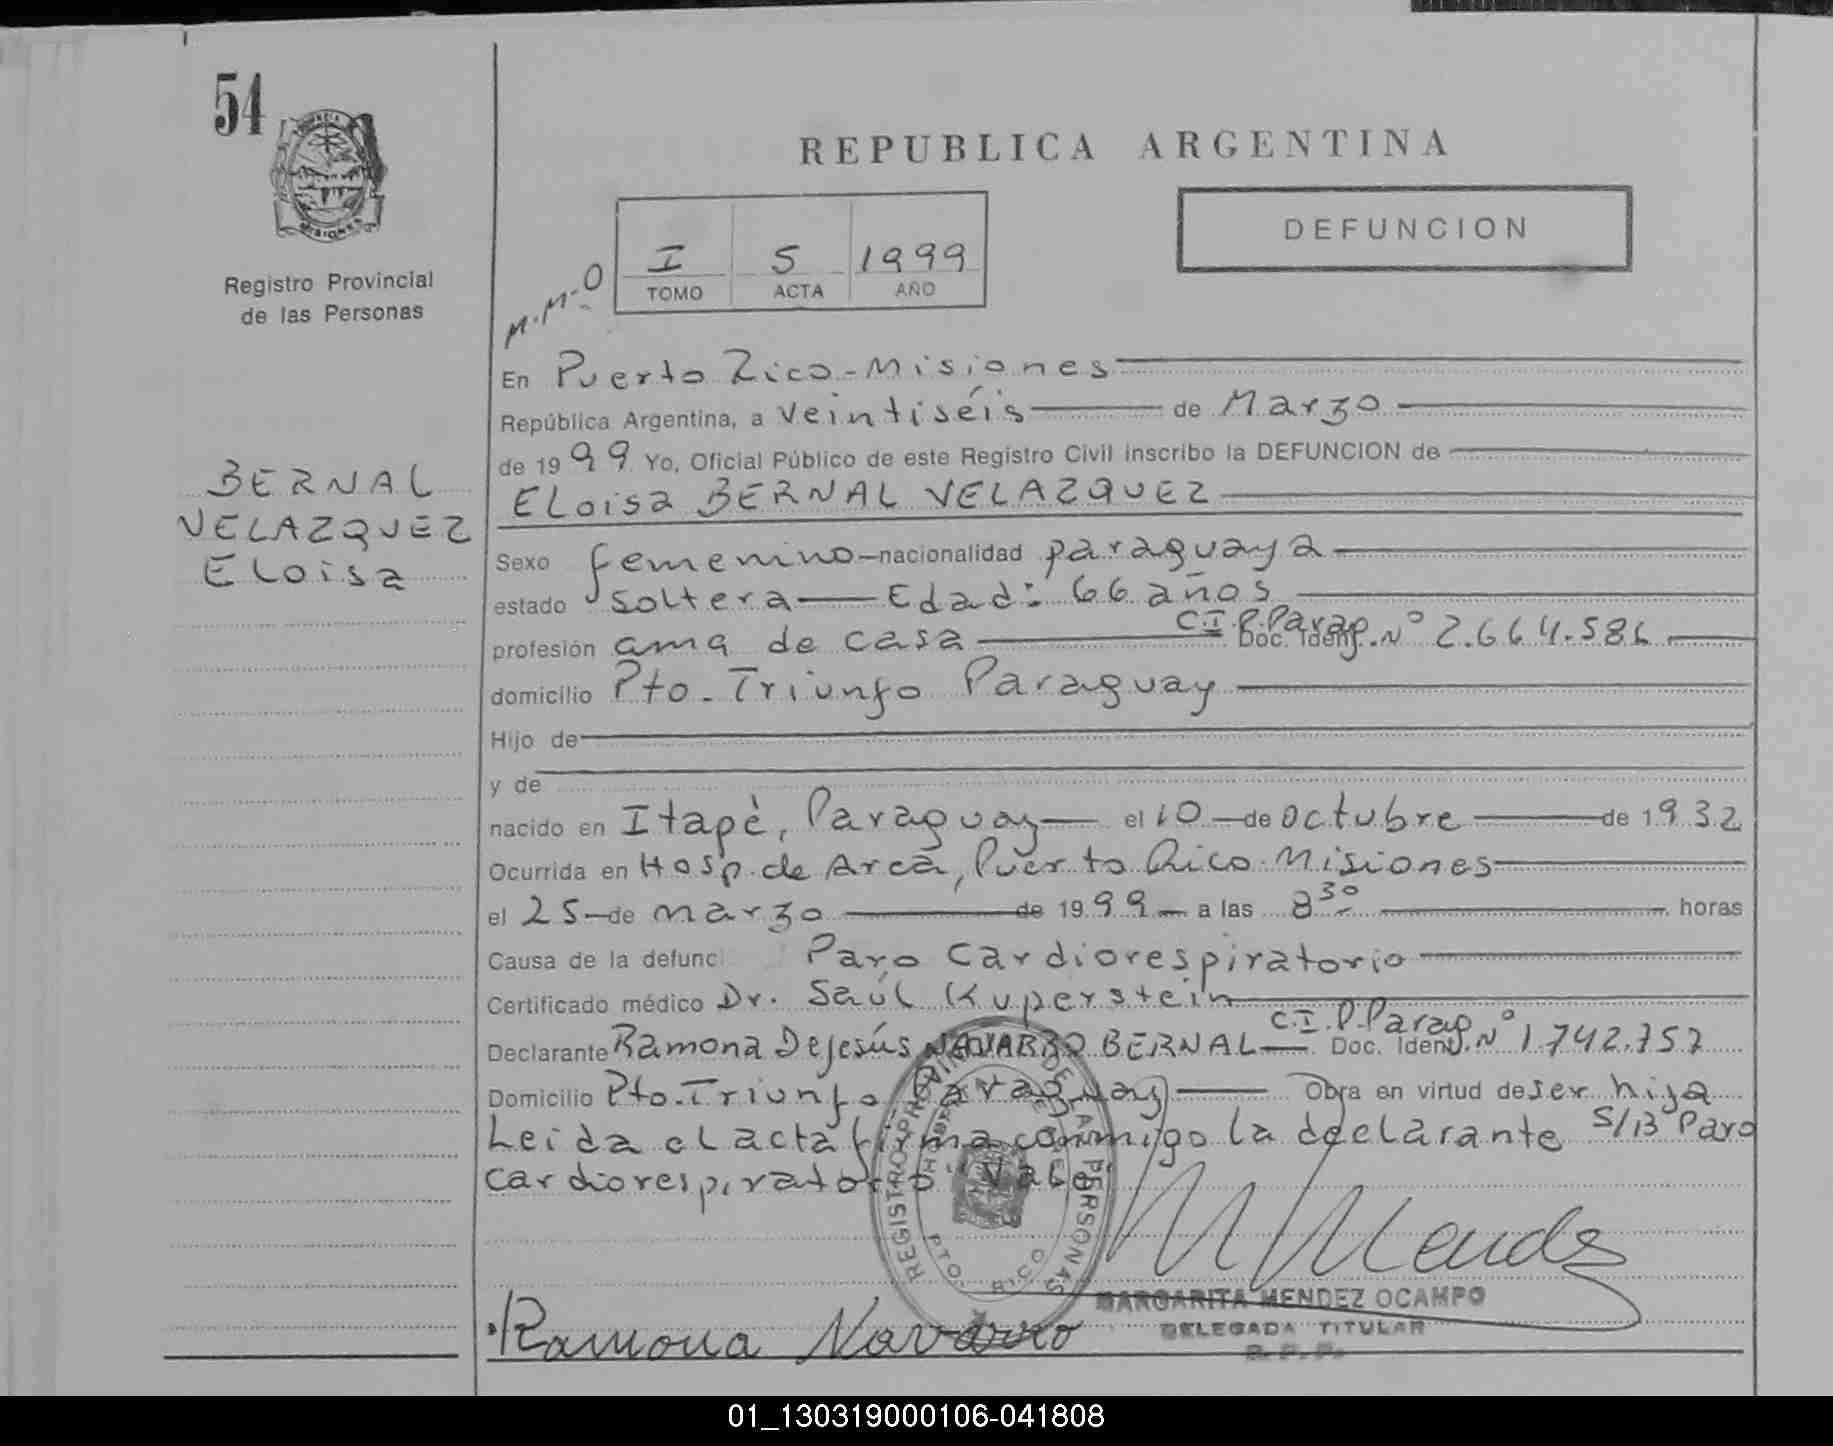 54
MISIONES
Registro Provincial
de las Personas
BERNAL
VELAZQUEZ
ELoisa
REPUBLICA ARGENTINA
I 5 1999
TOMO ACTA AÑO
DEFUNCION
M.M.O
En Puerto Rico-Misiones
República Argentina, a Veintiséis de Marzo
de 1999 Yo, Oficial Público de este Registro Civil inscribo la DEFUNCION de
ELoisa BERNAL VELAZQUEZ
Sexo femenino nacionalidad paraguaya
estado soltera Edad: 66 años
profesión ama de casa C.I.P.Parag. Doc. Ident. Nº 2.664.586
domicilio Pto. Triunfo Paraguay
Hijo de
y de
nacido en Itapè, Paraguay el 10 de Octubre de 1932
Ocurrida en Hosp. de Area, Puerto Rico-Misiones
el 25 de marzo de 1999 a las 8 30 horas
Causa de la defunc Paro Cardiorespiratorio
Certificado médico Dr. Saúl Kuperstein
Declarante Ramona DeJesús NAVARRO BERNAL C.I.P.Parag. Doc. Ident. Nº 1.742.757
Domicilio Pto. Triunfo Paraguay Obra en virtud de ser hija
Leida el acta firma conmigo la declarante S/B Paro
Cardiorespiratorio Vale
REGISTRO PROVINCIAL DE LAS PERSONAS
PTO. RICO
M Mendez
MARGARITA MENDEZ OCAMPO
DELEGADA TITULAR
R. P. P.
Ramona Navarro
01_130319000106-041808